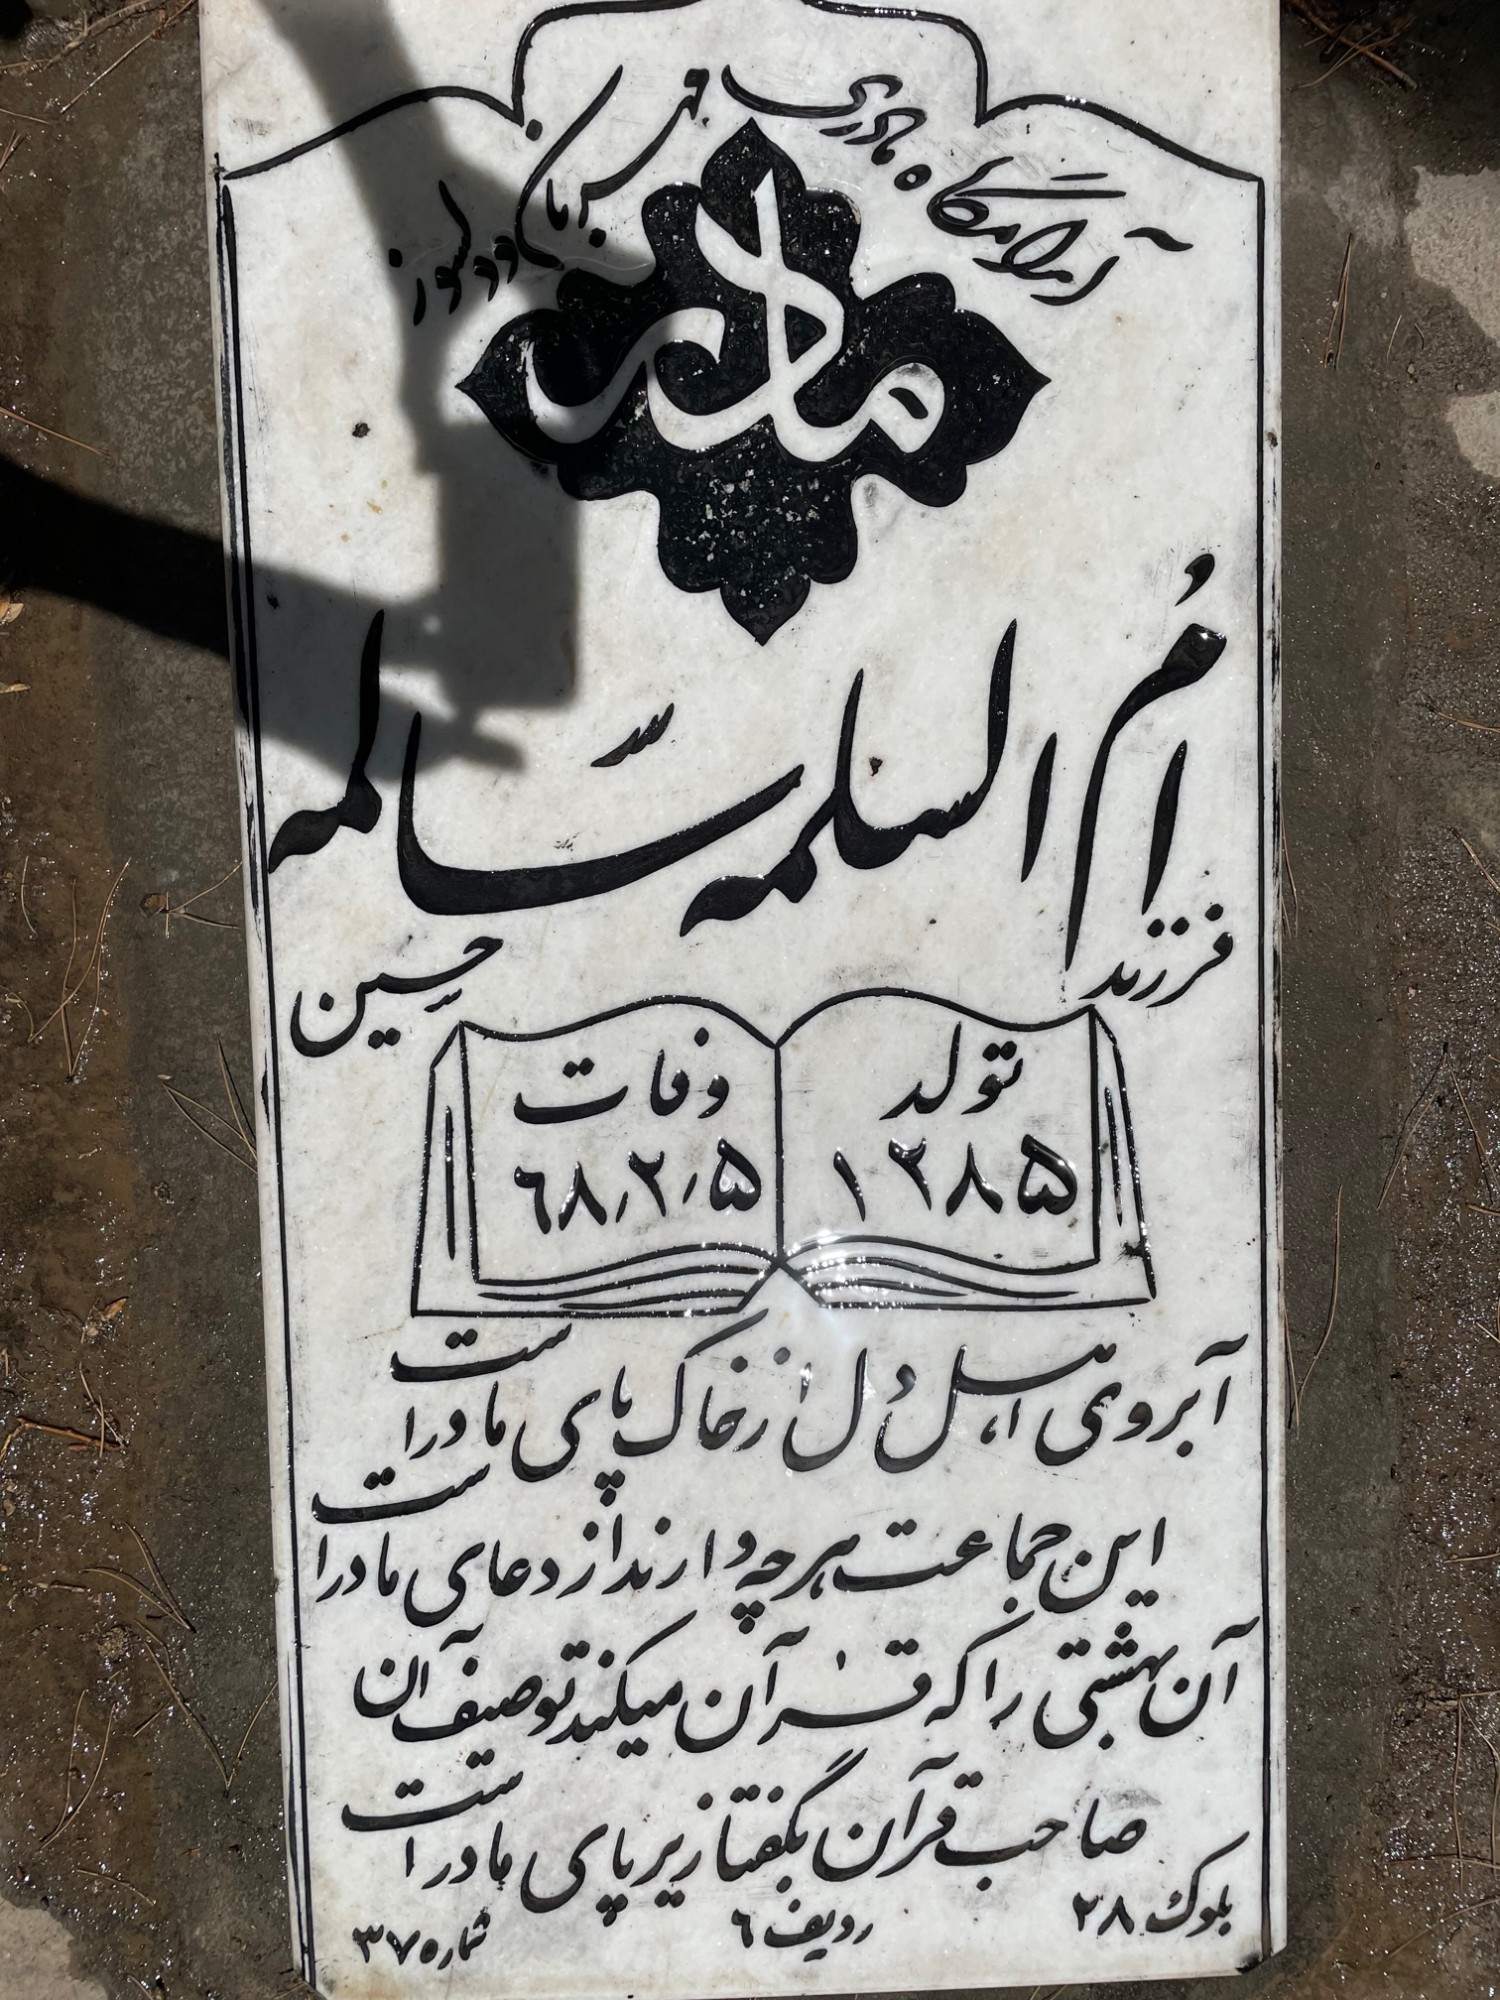 آرامگاه مادری مهربان ودلسوز
مادر
اُم السلمه سالمه
فرزند حسین
تولد وفات
۱۲۸۵ ۶۸٫۲٫۵
آبروی اهل دل از خاک پای مادر است
این جماعت هر چه دارند از دعای مادر است
آن بهشتی را که قرآن میکند توصیف آن
صاحب قرآن بگفتا زیر پای مادر است
بلوک ۲۸ ردیف ۶ شماره ۳۷